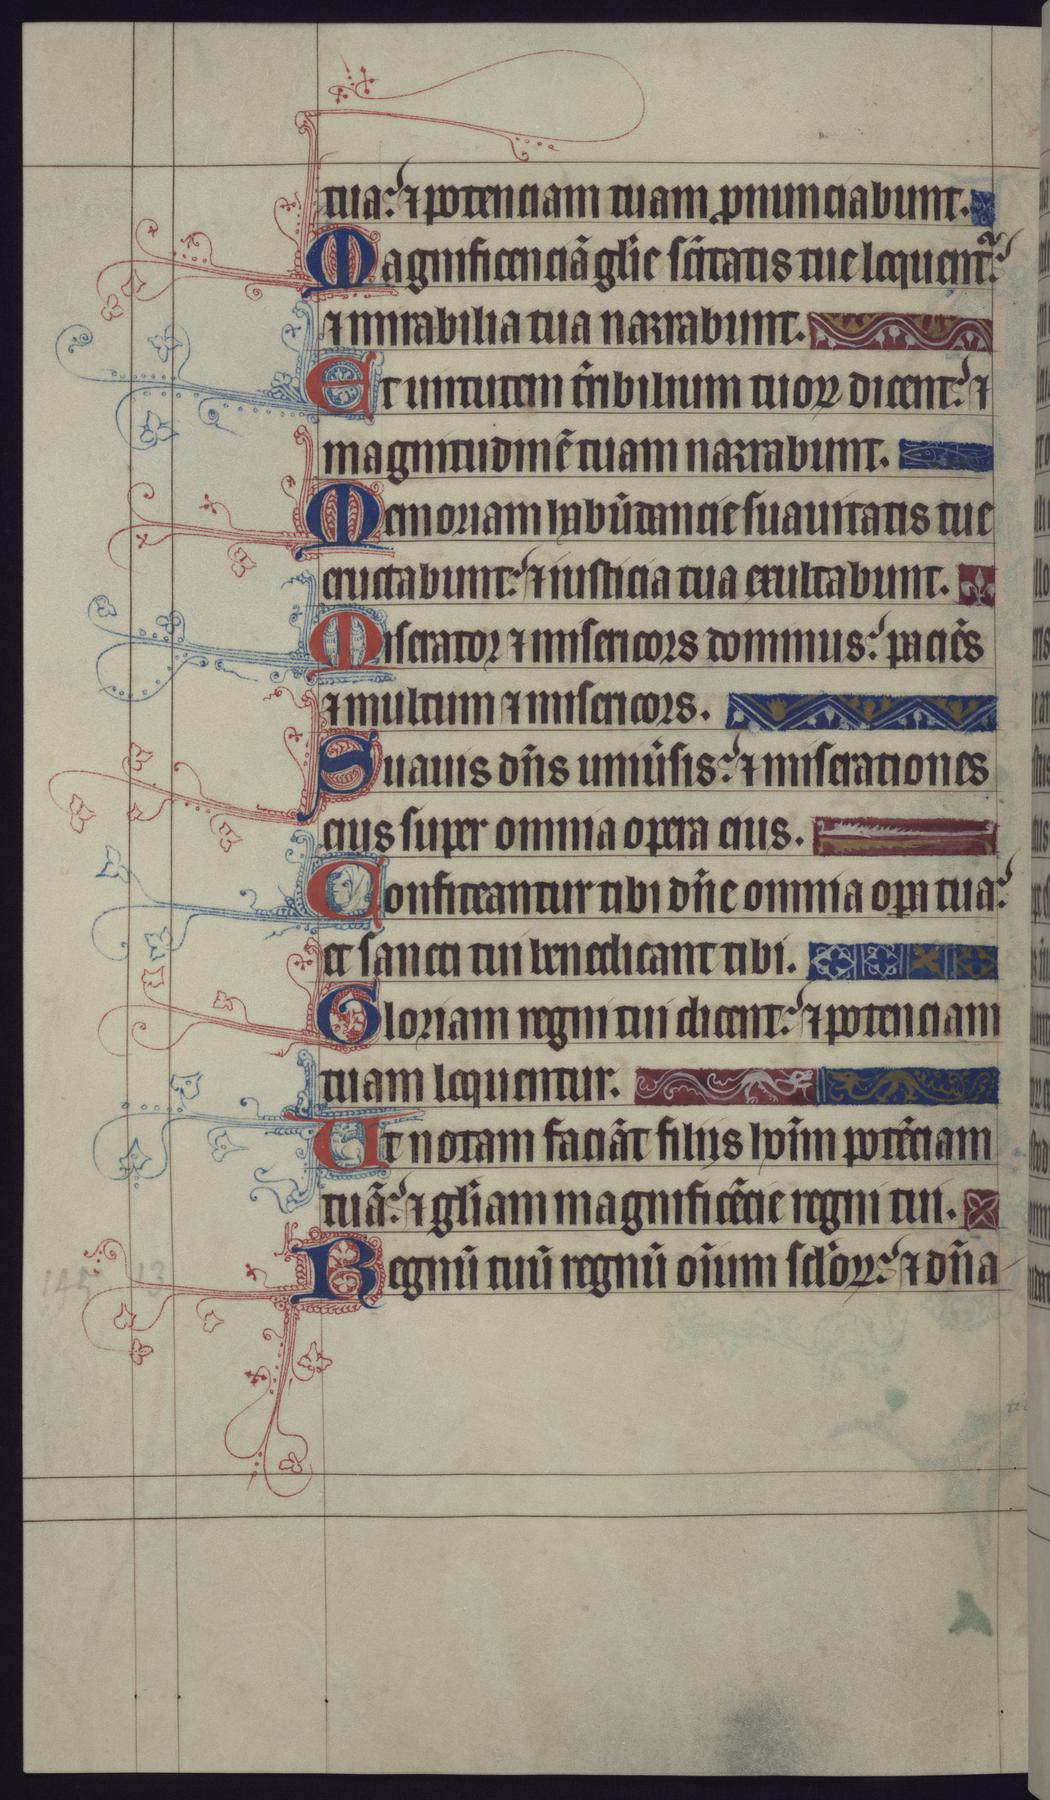 tua: ⁊ potenciam tuam ꝓnunciabunt.
Magnificenciā glīe sc̄itatis tue loquent᷑:
⁊ mirabilia tua narrabunt.
Et uirtutem t̄ribilium tuoꝝ dicent: ⁊
magnitudinē tuam narrabunt.
Memoriam habūdancie suauitatis tue
eructabunt: ⁊ iusticia tua exultabunt.
Miserator ⁊ misericors dominus: paciēs
⁊ multum ⁊ misericors.
Suauis dn̄s uniuīsis: ⁊ miserationes
eius super omnia opera eius.
Confiteantur tibi dn̄e omnia oꝑa tua:
et sancti tui benedicant tibi.
Gloriam regni tui dicent: ⁊ potenciam
tuam loquentur.
Ut notam faciāt filiis hoīm potēciam
tuā: ⁊ glīam magnificēcie regni tui.
Regnū tuū regnū oīum sclōꝝ: ⁊ dn̄a
145 13